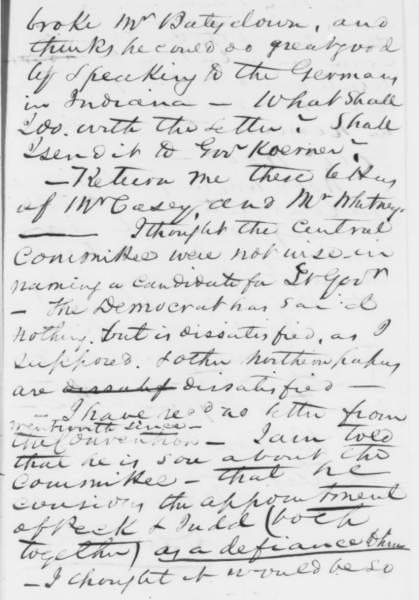 broke Mr Bates down, and
thinks he could do great good
by speaking to the Germans
in Indiana — What shall
I do. with the letter? Shall
I send it to Gov Koerner?
— Return me these letters
of Mr Casey, and Mr Whitney.
— I thought the central
committee were not wise in
naming a candidate for Lt Govr
— The Democrat has said
nothing, but is dissatisfied, as I
supposed. & other northern papers
are dissatisfied —
— I have recd a letter from
Wentworth since —
the Convention — I am told
that he is sour about the
Committee — that he
considers the appointment
of Peck & Judd (both
together) as a defiance to him
— I thought it would be so